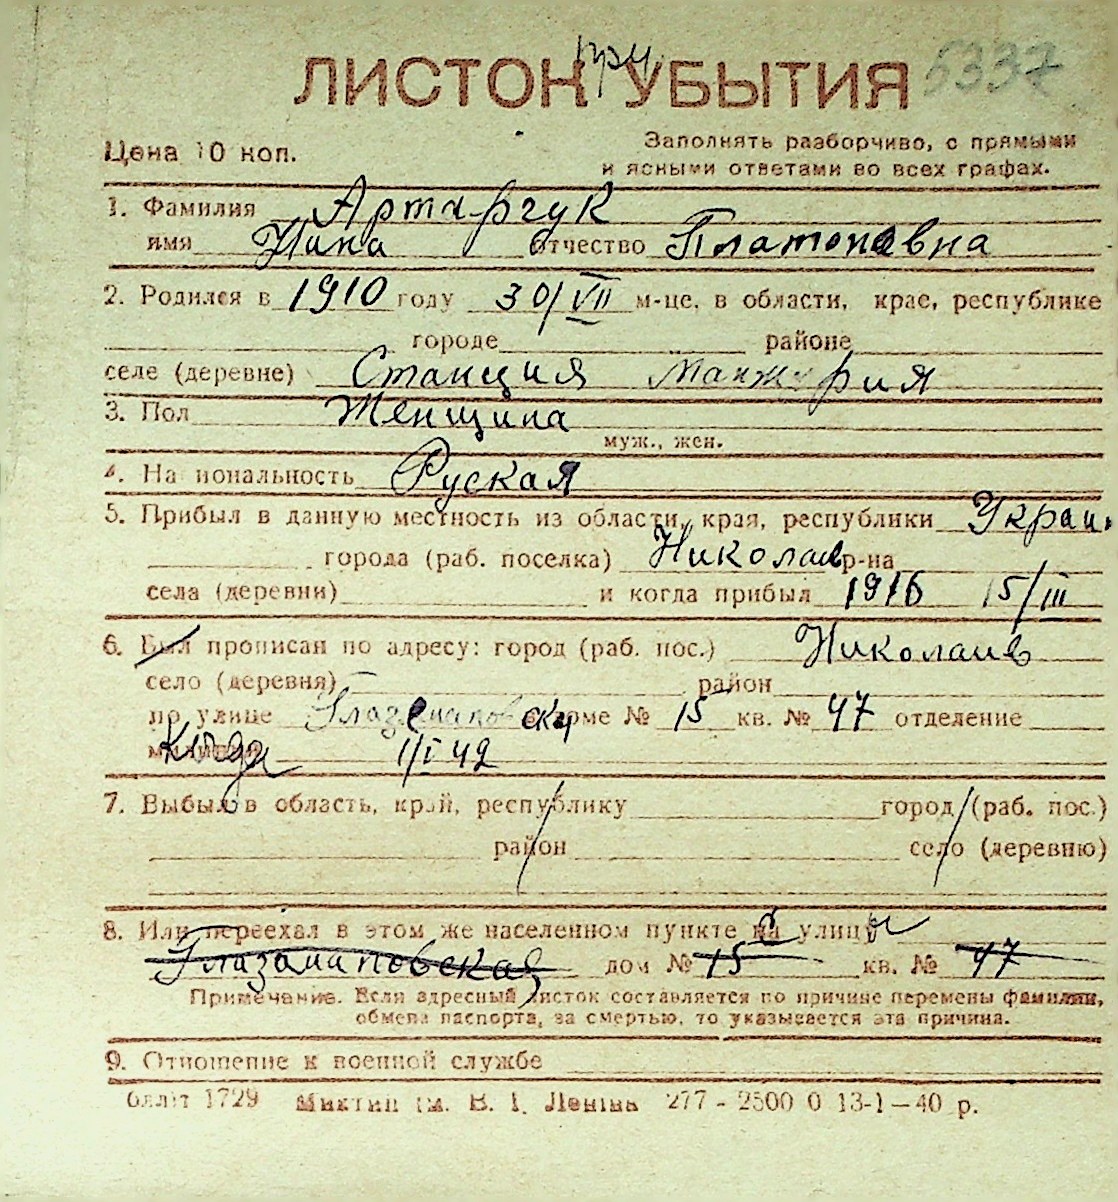 ЛИСТОК при УБЫТИЯ 5337
Цена 10 коп.
Заполнять разборчиво, с прямыми
и ясными ответами во всех графах.
1. Фамилия Артарчук
имя Нина отчество Платоновна
2. Родился в 1910 году 30/VII м-це, в области, крае, республике
городе районе
селе (деревне) Станция Манжурия
3. Пол Женщина
муж., жен.
4. Национальность Руская
5. Прибыл в данную местность из области, края, республики Украи.
города (раб. поселка) Николаев р-на
села (деревни) и когда прибыл 1916 15/III
6. Был прописан по адресу: город (раб. пос.) Николаив
село (деревня) район
по улице Глазенаповск доме № 15 кв. № 47 отделение
Когда 1/I 42
7. Выбыл в область, край, республику город (раб. пос.)
район село (деревню)
8. Или переехал в этом же населенном пункте с улицы
Глазанаповская дом № 15 кв. № 47
Примечание. Если адресный листок составляется по причине перемены фамилии,
обмена паспорта, за смертью, то указывается эта причина.
9. Отношение к военной службе
1729 ім. В. І. Леніна 277 - 2500 0 13-1-40 р.